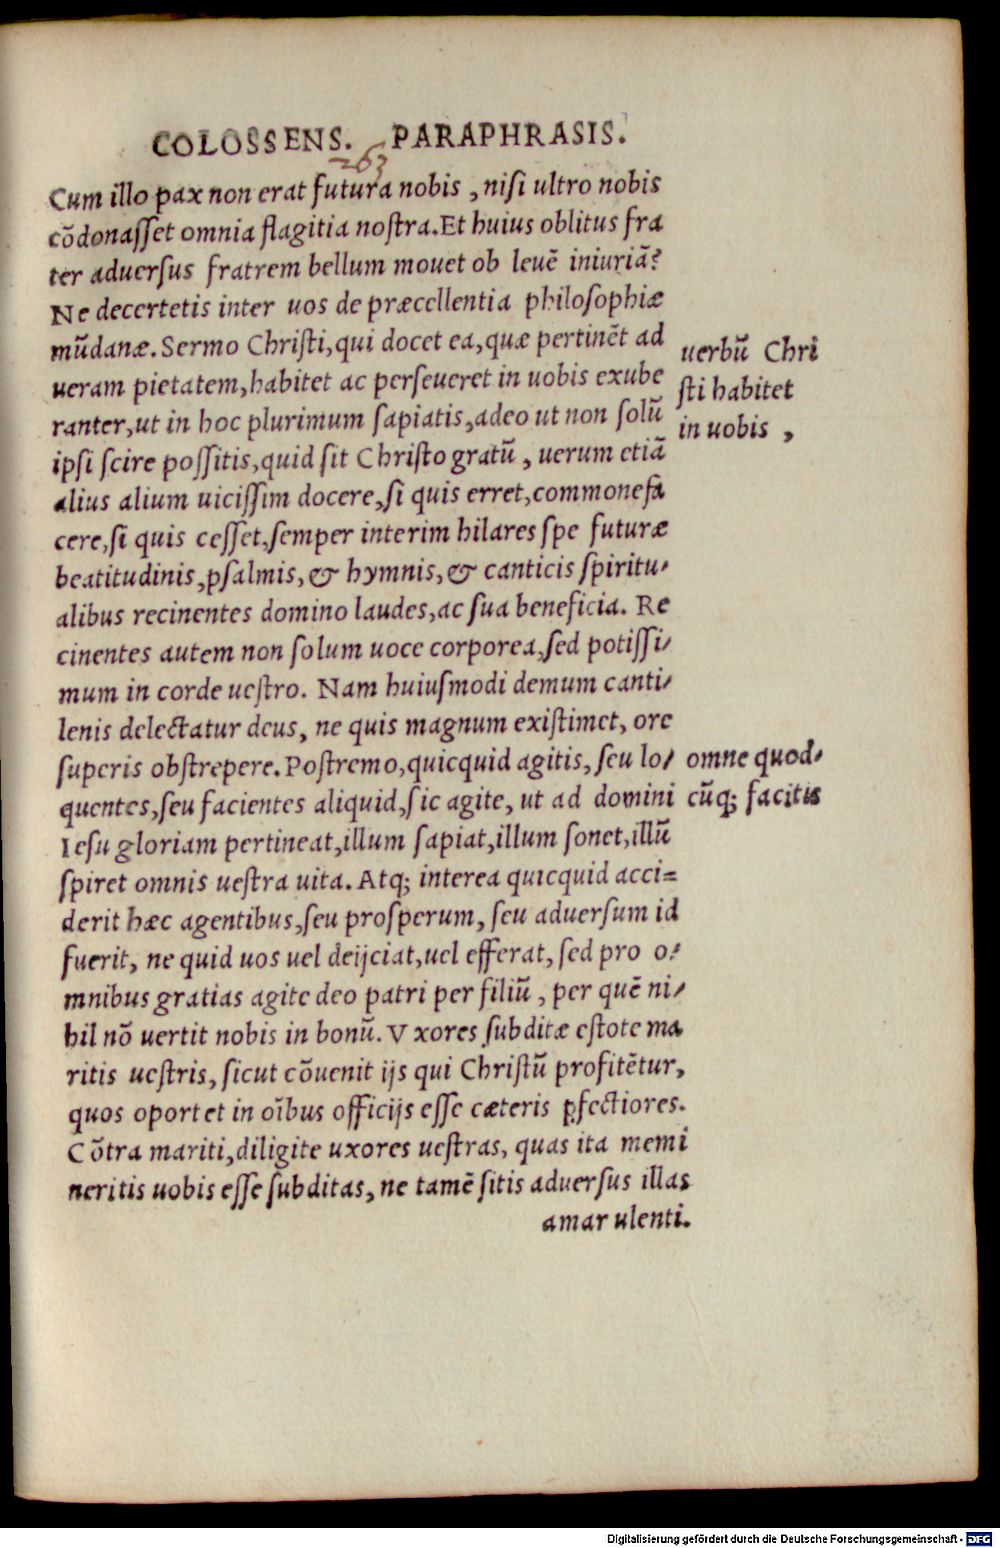 COLOSSENS. PARAPHRASIS.
263
Cum illo pax non erat futura nobis, nisi ultro nobis
cõdonasset omnia flagitia nostra. Et huius oblitus fra
ter aduersus fratrem bellum mouet ob leuẽ iniuriã?
Ne decertetis inter uos de præcellentia philosophiæ
mũdanæ. Sermo Christi, qui docet ea, quæ pertinẽt ad
ueram pietatem, habitet ac perseueret in uobis exube
ranter, ut in hoc plurimum sapiatis, adeo ut non solũ
ipsi scire possitis, quid sit Christo gratũ, uerum etiã
alius alium uicissim docere, si quis erret, commonefa
cere, si quis cesset, semper interim hilares spe futuræ
beatitudinis, psalmis, & hymnis, & canticis spiritu-
alibus recinentes domino laudes, ac sua beneficia. Re
cinentes autem non solum uoce corporea, sed potissi-
mum in corde uestro. Nam huiusmodi demum canti-
lenis delectatur deus, ne quis magnum existimet, ore
superis obstrepere. Postremo, quicquid agitis, seu lo-
quentes, seu facientes aliquid, sic agite, ut ad domini
Iesu gloriam pertineat, illum sapiat, illum sonet, illũ
spiret omnis uestra uita. Atq; interea quicquid acci=
derit hæc agentibus, seu prosperum, seu aduersum id
fuerit, ne quid uos uel deijciat, uel efferat, sed pro o-
mnibus gratias agite deo patri per filiũ, per quẽ ni-
hil nõ uertit nobis in bonũ. Vxores subditæ estote ma
ritis uestris, sicut cõuenit ijs qui Christũ profitẽtur,
quos oportet in oĩbus officijs esse cæteris ꝑfectiores.
Cõtra mariti, diligite uxores uestras, quas ita memi
neritis uobis esse subditas, ne tamẽ sitis aduersus illas
amarulenti.
uerbũ Chri
sti habitet
in uobis,
omne quod-
cũq; facitis
Digitalisierung gefördert durch die Deutsche Forschungsgemeinschaft - DFG